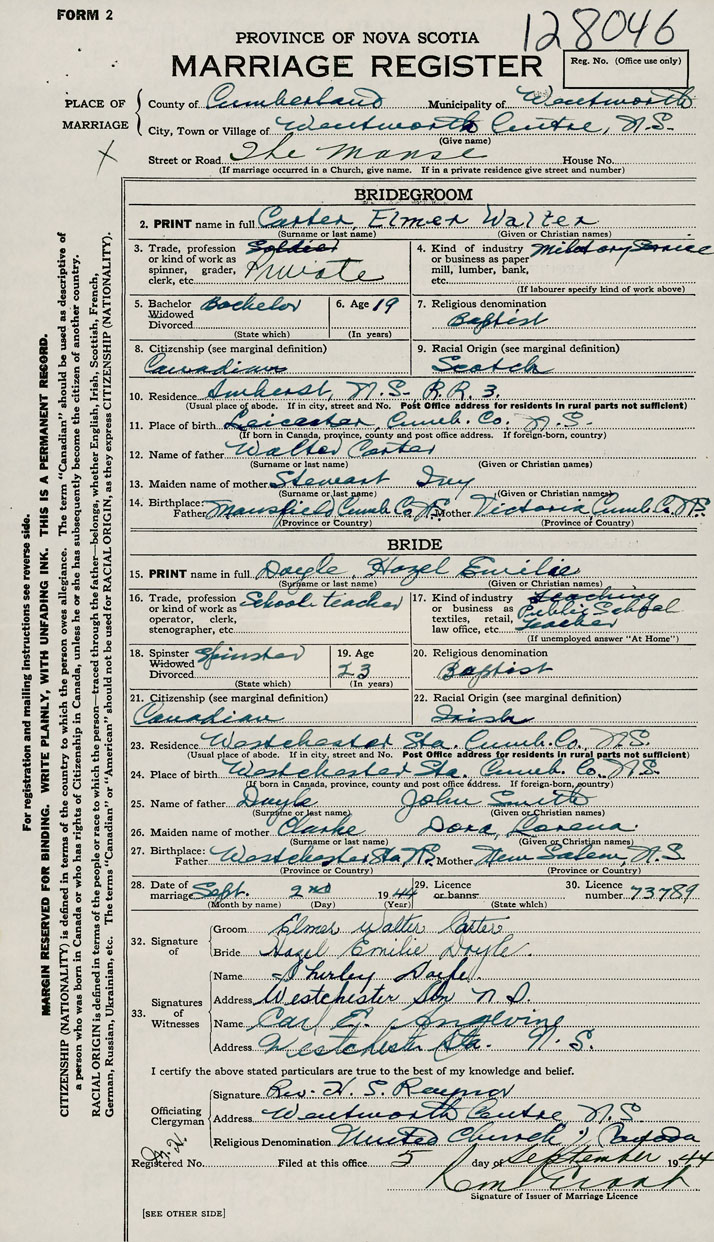 FORM 2
128046
PROVINCE OF NOVA SCOTIA
MARRIAGE REGISTER
Reg. No. (Office use only)
PLACE OF MARRIAGE
County of Cumberland Municipality of Wentworth
City, Town or Village of Wentworth Centre, N.S.
(Give name)
X
Street or Road The Manse House No.
(If marriage occurred in a Church, give name. If in a private residence give street and number)
BRIDEGROOM
2. PRINT name in full Carter, Elmer Walter
(Surname or last name) (Given or Christian names)
3. Trade, profession or kind of work as spinner, grader, clerk, etc. Soldier Private
4. Kind of industry or business as paper mill, lumber, bank, etc. Military Service
(If labourer specify kind of work above)
5. Bachelor Widowed Divorced Bachelor
(State which)
6. Age 19
(In years)
7. Religious denomination
Baptist
8. Citizenship (see marginal definition)
Canadian
9. Racial Origin (see marginal definition)
Scotch
10. Residence Amherst, N.S. R.R. 3.
(Usual place of abode. If in city, street and No. Post Office address for residents in rural parts not sufficient)
11. Place of birth Leicester, Cumb. Co. N.S.
(If born in Canada, province, county and post office address. If foreign-born, country)
12. Name of father Walter Carter
(Surname or last name) (Given or Christian names)
13. Maiden name of mother Stewart Ivy
(Surname or last name) (Given or Christian names)
14. Birthplace: Father Mansfield Cumb. Co. N.S. Mother Victoria Cumb. Co. N.S.
(Province or Country) (Province or Country)
BRIDE
15. PRINT name in full Doyle, Hazel Emilie
(Surname or last name) (Given or Christian names)
16. Trade, profession or kind of work as operator, clerk, stenographer, etc. School teacher
17. Kind of industry or business as textiles, retail, law office, etc. Teaching Public School Teacher
(If unemployed answer "At Home")
18. Spinster Widowed Divorced Spinster
(State which)
19. Age
23
(In years)
20. Religious denomination
Baptist
21. Citizenship (see marginal definition)
Canadian
22. Racial Origin (see marginal definition)
Irish
23. Residence Westchester Sta. Cumb. Co., N.S.
(Usual place of abode. If in city, street and No. Post Office address for residents in rural parts not sufficient)
24. Place of birth Westchester Sta. Cumb. Co., N.S.
(If born in Canada, province, county and post office address. If foreign-born, country)
25. Name of father Doyle John Smith
(Surname or last name) (Given or Christian names)
26. Maiden name of mother Clarke Dora Lorena
(Surname or last name) (Given or Christian names)
27. Birthplace: Father Westchester Sta N.S. Mother New Salem, N.S.
(Province or Country) (Province or Country)
28. Date of marriage Sept. 2nd 1944
(Month by name) (Day) (Year)
29. Licence or banns
(State which)
30. Licence number 73789
32. Signature of
Groom Elmer Walter Carter
Bride Hazel Emilie Doyle
33. Signatures of Witnesses
Name Shirley Doyle
Address Westchester Stn N.S.
Name Carl E. Angevine
Address Westchester Sta. N.S.
I certify the above stated particulars are true to the best of my knowledge and belief.
Officiating Clergyman
Signature Rev. H. S. Raynor
Address Wentworth Centre, N.S.
Religious Denomination United Church of Canada
Registered No. Filed at this office 5 day of September 1944
Signature of Issuer of Marriage Licence
[SEE OTHER SIDE]
For registration and mailing instructions see reverse side.
MARGIN RESERVED FOR BINDING. WRITE PLAINLY, WITH UNFADING INK. THIS IS A PERMANENT RECORD.
CITIZENSHIP (NATIONALITY) is defined in terms of the country to which the person owes allegiance. The term "Canadian" should be used as descriptive of
a person who was born in Canada or who has rights of Citizenship in Canada, unless he or she has subsequently become the citizen of another country.
RACIAL ORIGIN is defined in terms of the people or race to which the person—traced through the father—belongs, whether English, Irish, Scottish, French,
German, Russian, Ukrainian, etc. The terms "Canadian" or "American" should not be used for RACIAL ORIGIN, as they express CITIZENSHIP (NATIONALITY).